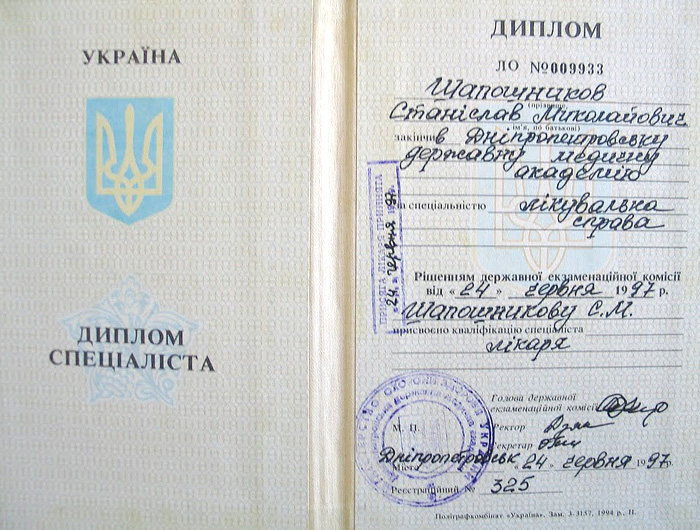 УКРАЇНА
ДИПЛОМ
СПЕЦІАЛІСТА
ДИПЛОМ
ЛО №009933
Шапошников
(прізвище,
Станіслав Миколайович
ім'я, по батькові)
закінчив Дніпропетровську
державну медичну
академію
за спеціальністю лікувальна
справа
Рішенням державної екзаменаційної комісії
від «24» червня 1997 р.
Шапошникову С.М.
присвоєно кваліфікацію спеціаліста
лікаря
Голова державної
екзаменаційної комісії
М. П.
Ректор
Секретар
Дніпропетровськ «24» червня 1997 р.
Місто
Реєстраційний № 325
Поліграфкомбінат «Україна». Зам. 3-3157. 1994 р., II.
ПРИСЯГА ЛІКАРЯ ПРИЙНЯТА
«24» червня 1997р.